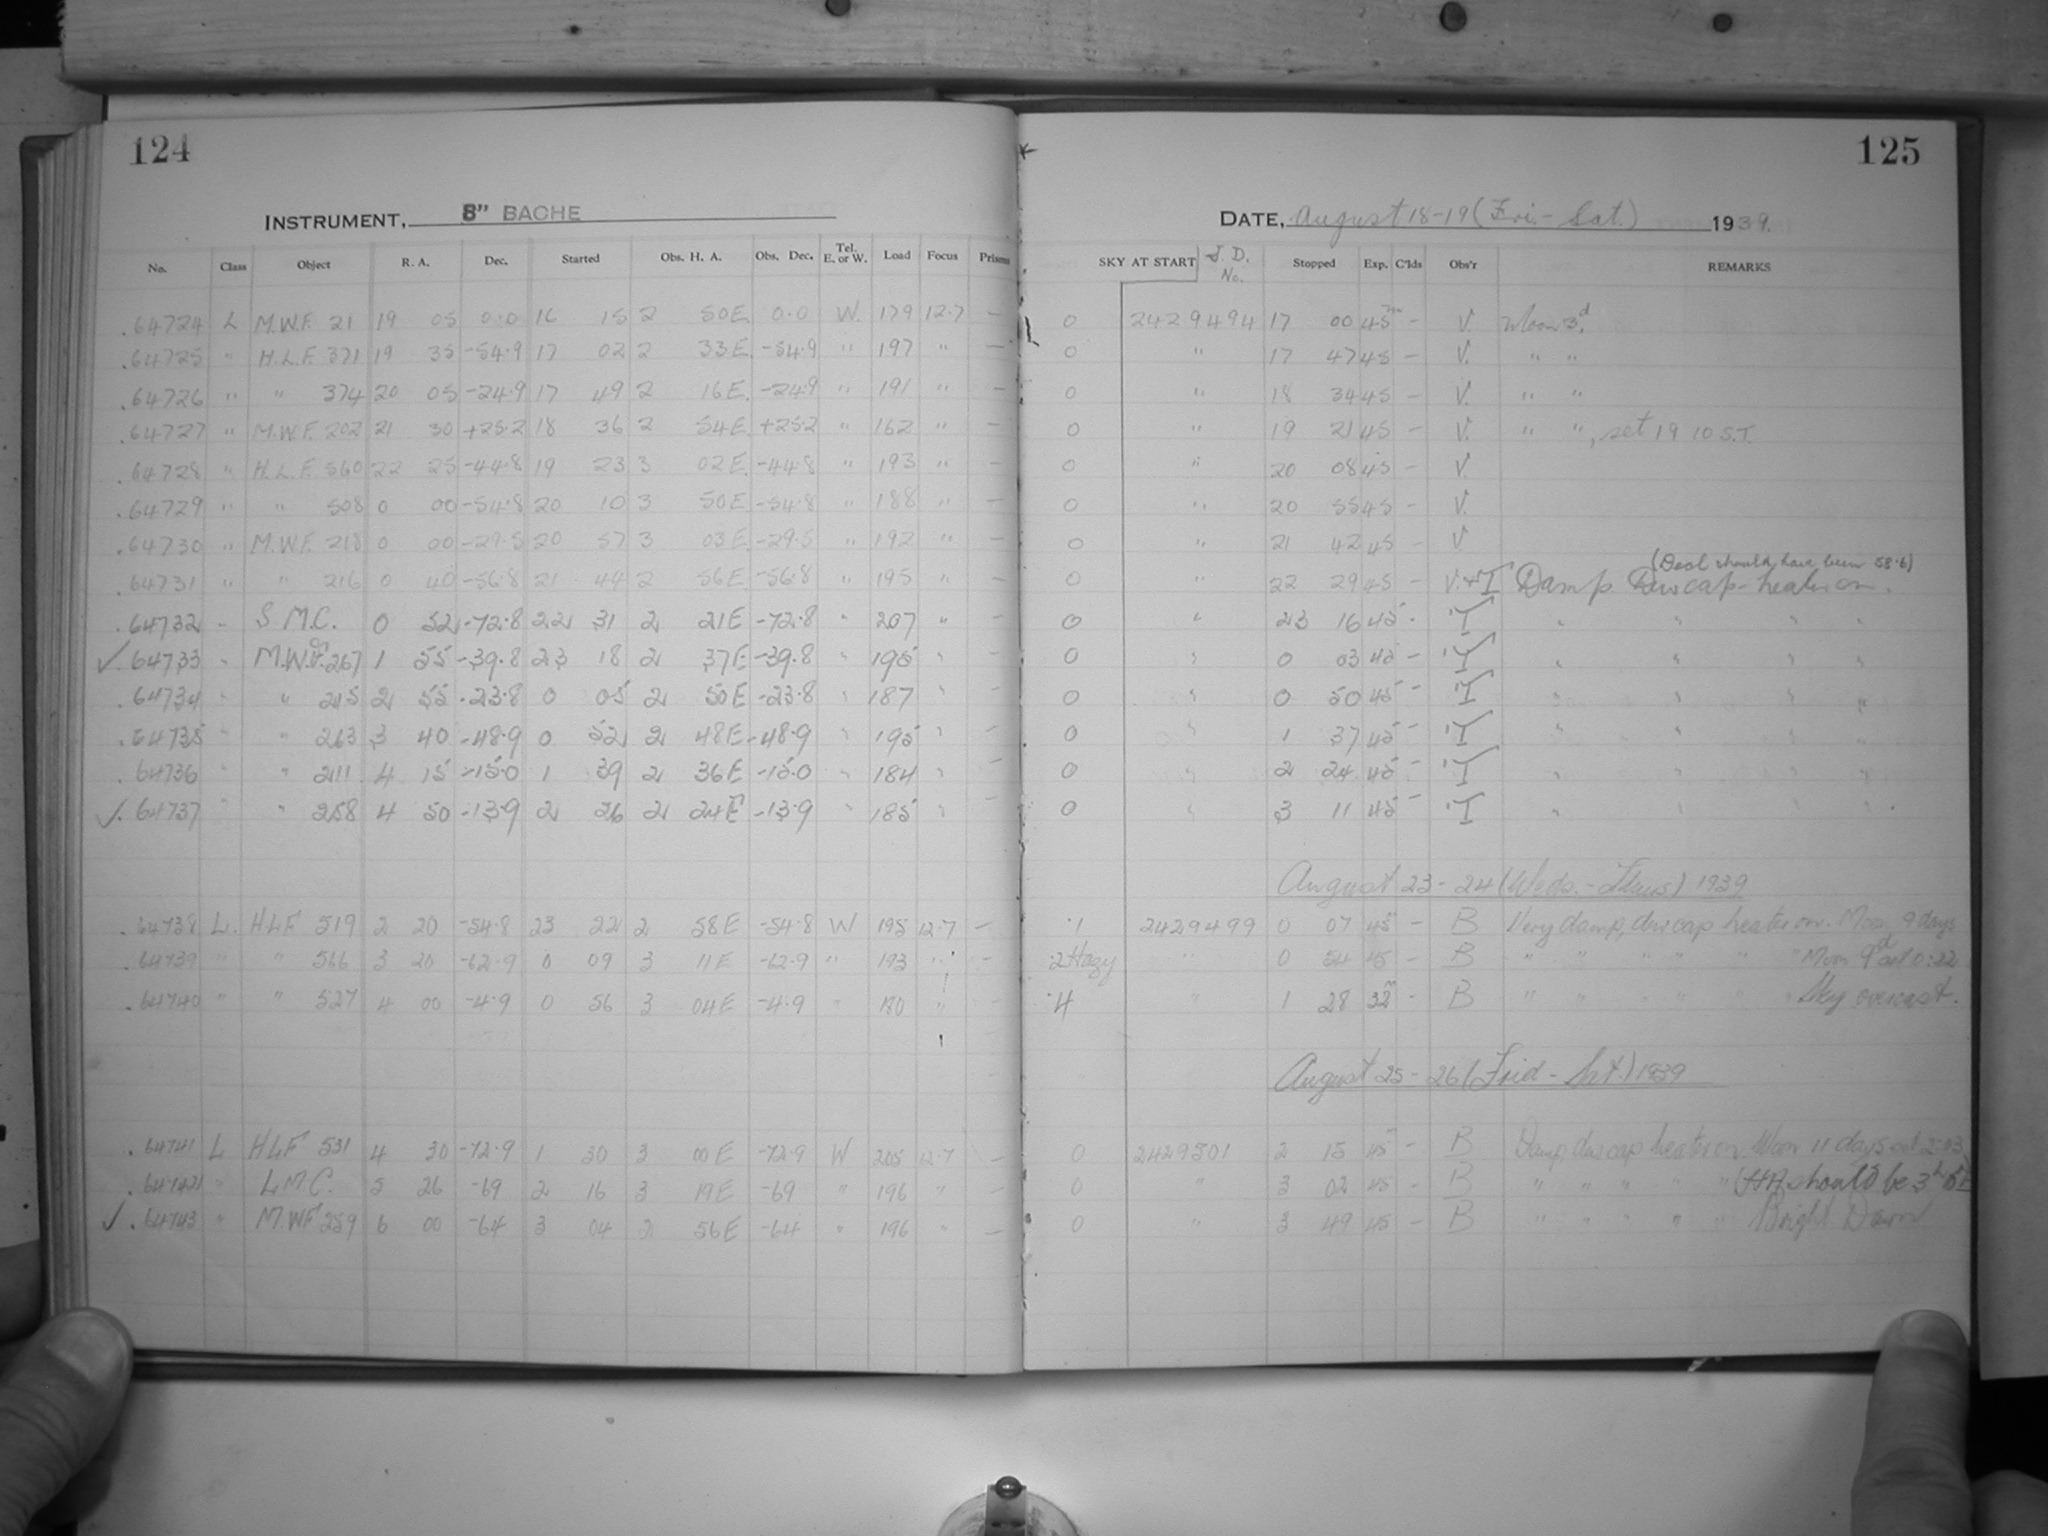 124
INSTRUMENT, 8" BACHE
No. Class Object R. A. Dec. Started Obs. H. A. Obs. Dec. Tel. E. or W. Load Focus Prisms
.64724 L M.W.F. 21 19 05 0.0 16 15 2 50E. 0.0 W. 179 12.7 —
.64725 " H.L.F. 371 19 35 -54.9 17 02 2 33E. -54.9 " 197 " —
.64726 " " 374 20 05 -24.9 17 49 2 16E. -24.9 " 191 " —
.64727 " M.W.F. 202 21 30 +25.2 18 36 2 54E. +25.2 " 162 " —
.64728 " H.L.F. 560 22 25 -44.8 19 23 3 02E. -44.8 " 193 " —
.64729 " " 508 0 00 -54.8 20 10 3 50E -54.8 " 188 " —
.64730 " M.W.F. 218 0 00 -29.5 20 57 3 03E. -29.5 " 192 " —
.64731 " " 216 0 40 -56.8 21 44 2 56E. -56.8 " 195 " —
.64732 " S M.C. 0 52 -72.8 22 31 2 21E -72.8 " 207 " —
✓.64733 " M.W.F. 267 1 55 -39.8 23 18 2 37E -39.8 " 195 " —
.64734 " " 215 2 55 -23.8 0 05 2 50E -23.8 " 187 " —
.64735 " " 263 3 40 -48.9 0 52 2 48E -48.9 " 195 " —
.64736 " " 211 4 15 -15.0 1 39 2 36E -15.0 " 184 " —
✓.64737 " " 258 4 50 -13.9 2 26 2 24E -13.9 " 185 " —
.64738 L. HLF 519 2 20 -54.8 23 22 2 58E -54.8 W 195 12.7 —
.64739 " " 566 3 20 -62.9 0 09 3 11E -62.9 " 193 " —
.64740 " " 527 4 00 -4.9 0 56 3 04E -4.9 " 180 "
.64741 L HLF 531 4 30 -72.9 1 30 3 00E -72.9 W 205 12.7 —
.64742 " LMC. 5 26 -69 2 16 3 19E -69 " 196 " —
✓.64743 " M.WF 259 6 00 -64 3 04 2 56E -64 " 196 " —
125
DATE, August 18-19 (Fri. - Sat.) 1939.
SKY AT START J. D. No. Stopped Exp. C'lds Obs'r REMARKS
0 2429494 17 00 45m — V. Moon 3d.
0 " 17 47 45 — V. " "
0 " 18 34 45 — V. " "
0 " 19 21 45 — V. " ", set 19 10 S.T.
0 " 20 08 45 — V.
0 " 20 55 45 — V.
0 " 21 42 45 — V
(Decl should have been 58.6)
0 " 22 29 45 — V.+T Damp. Dewcap-heater on.
0 " 23 16 45 . T " " " "
0 " 0 03 45 — T " " " "
0 " 0 50 45 — T " " " "
0 " 1 37 45 — T " " " "
0 " 2 24 45 — T " " " "
0 " 3 11 45 — T " " " "
August 23-24 (Weds. - Thurs) 1939
.1 2429499 0 07 45 — B Very damp, dew cap heater on. Moon 9 days
.2 Hazy " 0 54 45 — B " " " " " Moon 9d set 0:22
.4 " 1 28 32m - B " " " " " Sky overcast.
August 25-26 (Frid - Sat.) 1939
0 2429501 2 15 45 — B Damp, dew cap heater on. Moon 11 days set 2:03
0 " 3 02 45 — B " " " " " (HA should be 3h
0 " 3 49 45 — B " " " " " Bright Dawn